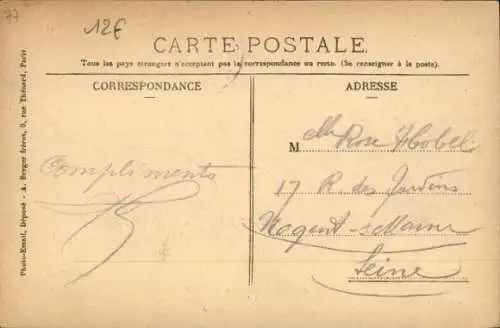 77
12€
CARTE POSTALE
Tous les pays étrangers n'acceptant pas la correspondance au recto. (Se renseigner à la poste).
CORRESPONDANCE
ADRESSE
Compliments
M
Rose
17 R. des Jardins
Nogent s/Marne
Seine
Photo-Email, Déposé - A. Breger frères, 9, rue Thénard, Paris